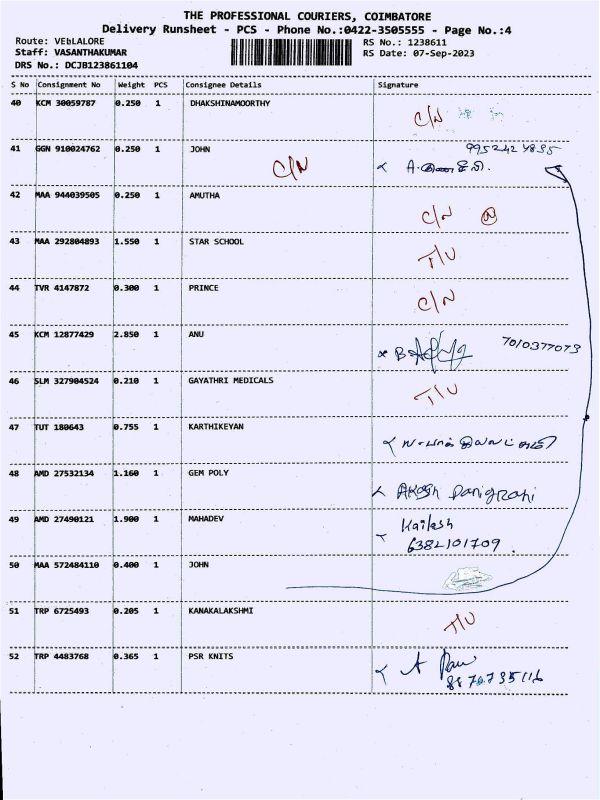 THE PROFESSIONAL COURIERS, COIMBATORE
Delivery Runsheet - PCS - Phone No.:0422-3505555 - Page No.:4
Route: VEbLALORE
RS No.: 1238611
Staff: VASANTHAKUMAR
RS Date: 07-Sep-2023
DRS No.: DCJB123861104
S No Consignment No Weight PCS Consignee Details Signature
40 KCM 30059787 0.250 1 DHAKSHINAMOORTHY C/N
41 GGN 910024762 0.250 1 JOHN
C/N A.
42 MAA 944039505 0.250 1 AMUTHA
C/N N
43 MAA 292804893 1.550 1 STAR SCHOOL T/U
44 TVR 4147872 0.300 1 PRINCE C/N
45 KCM 12877429 2.850 1 ANU
7010377073
46 SLM 327904524 0.210 1 GAYATHRI MEDICALS T/U
47 TUT 180643 0.755 1 KARTHIKEYAN
48 AMD 27532134 1.160 1 GEM POLY
Akash Panigrahi
49 AMD 27490121 1.900 1 MAHADEV Kailash
6382101709
50 MAA 572484110 0.400 1 JOHN
51 TRP 6725493 0.205 1 KANAKALAKSHMI T/U
52 TRP 4483768 0.365 1 PSR KNITS
8870735116